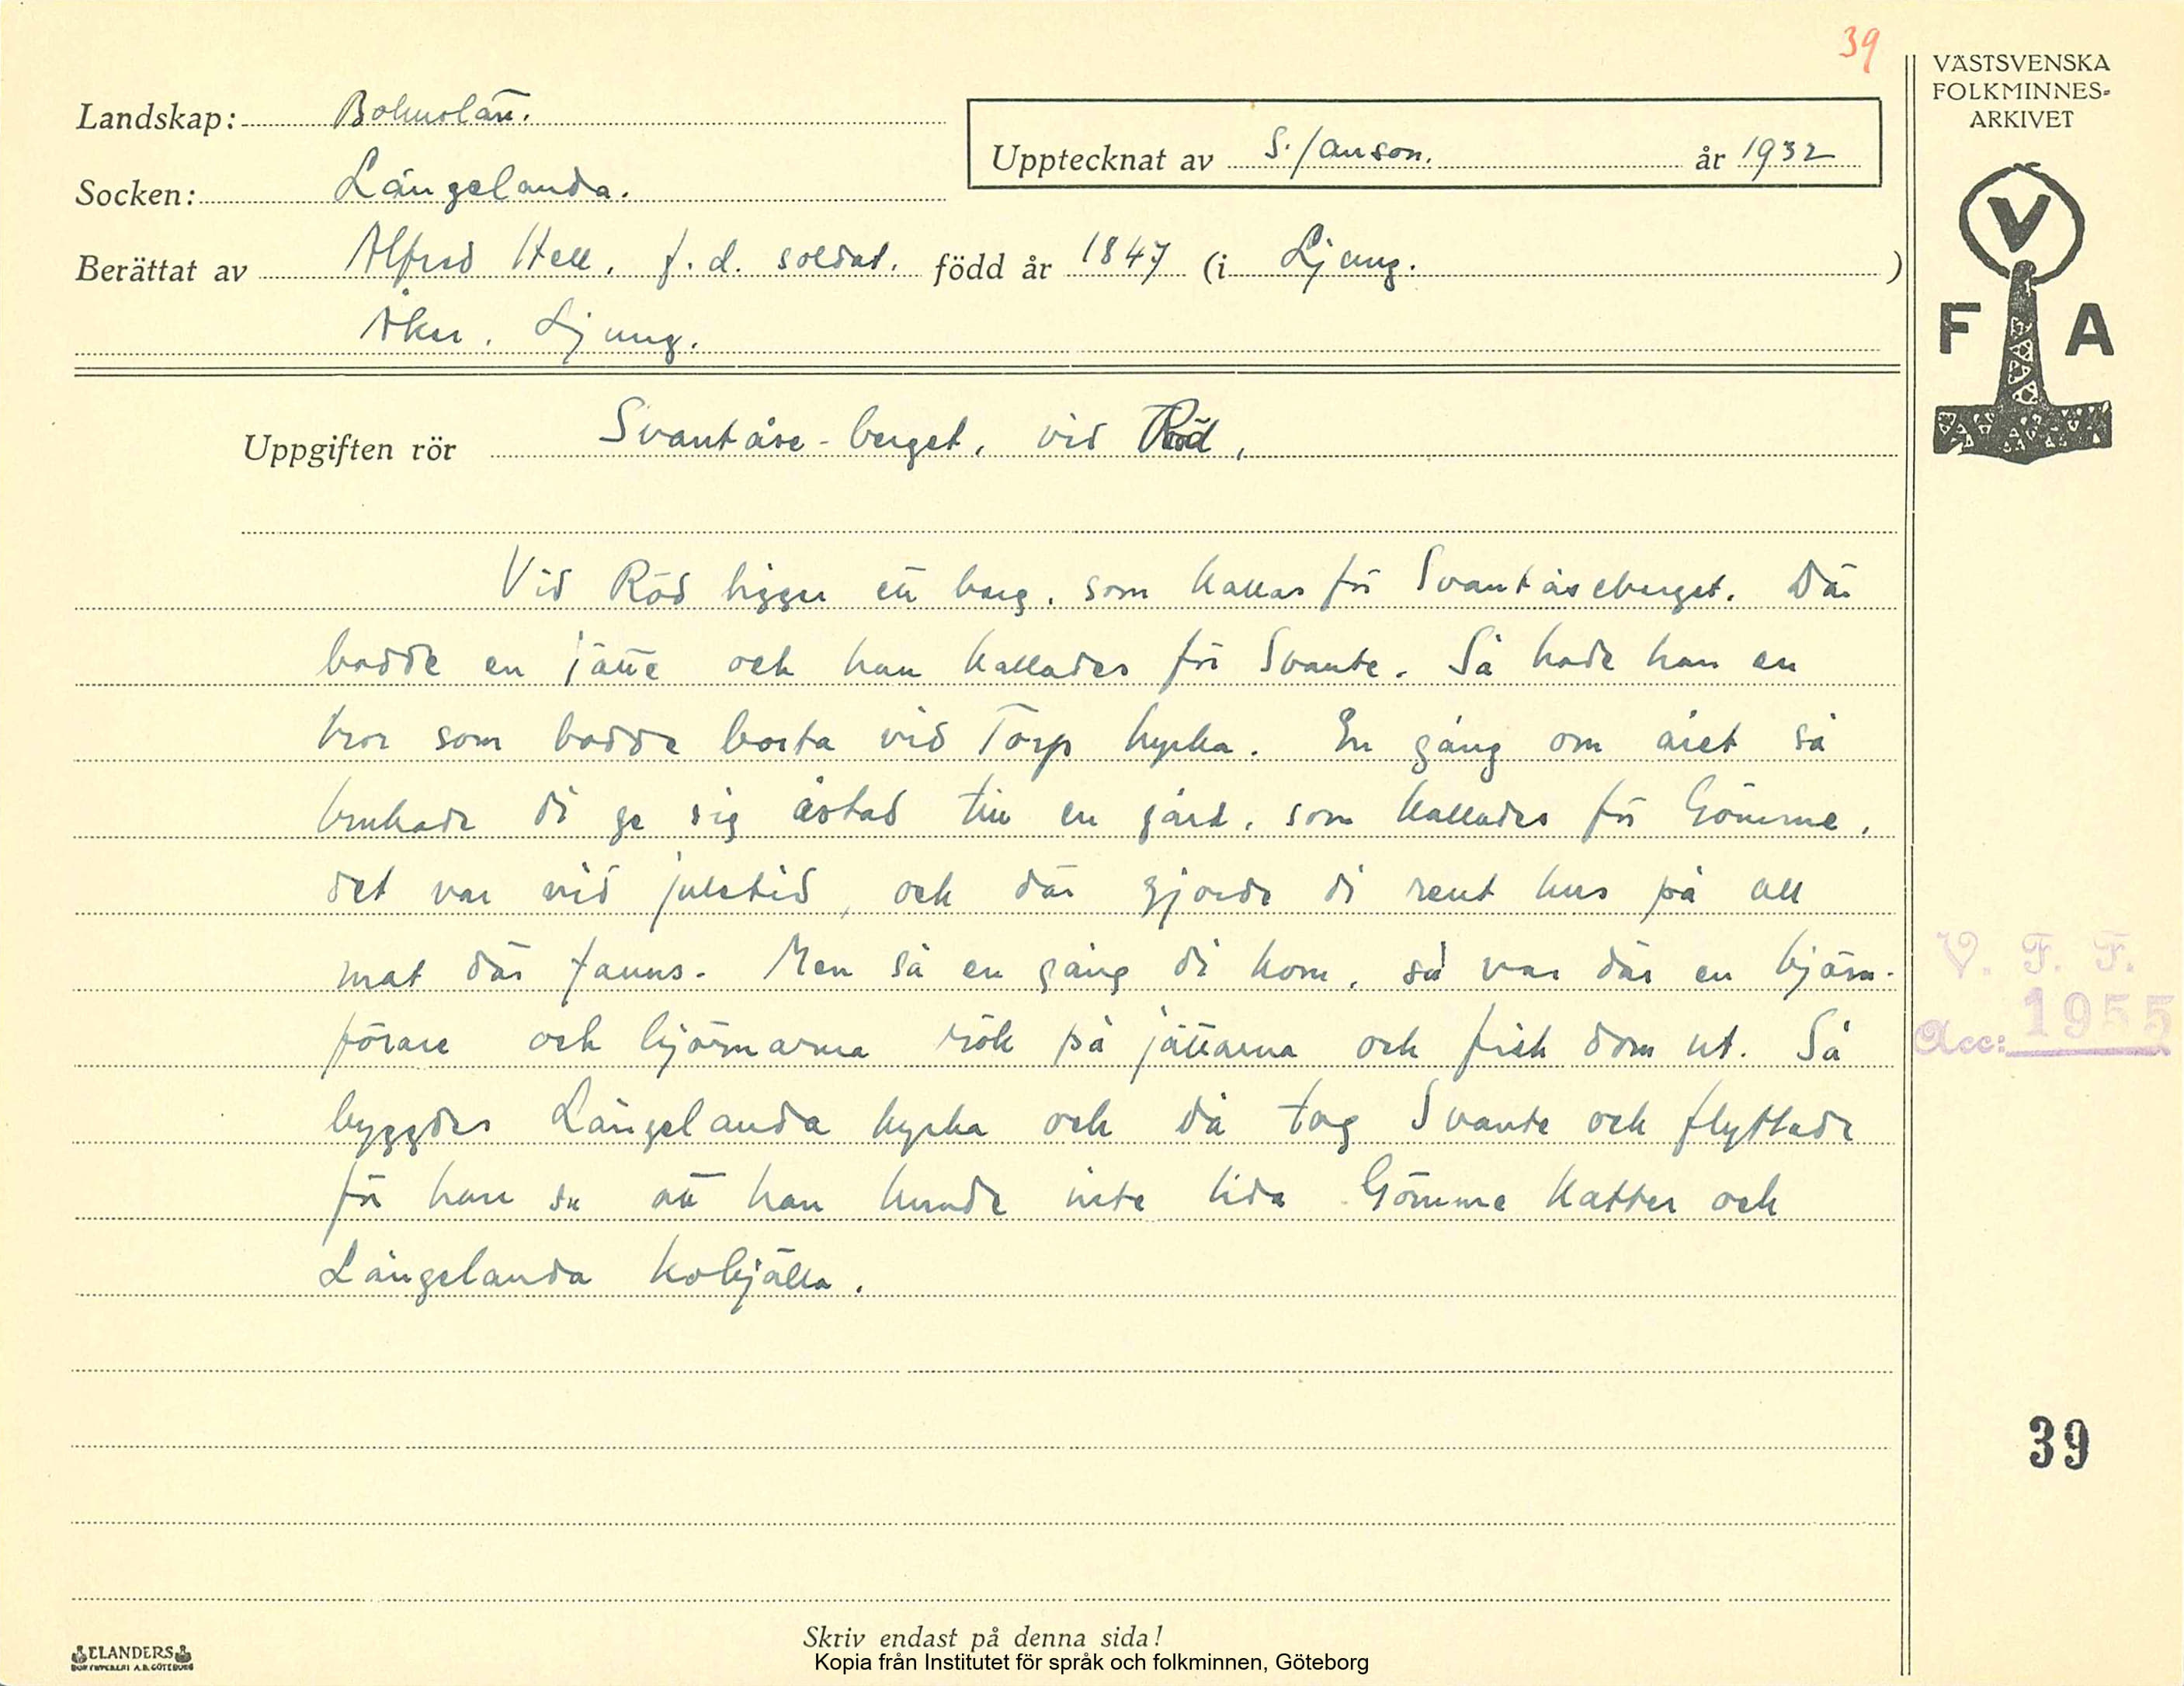 39
VÄSTSVENSKA
FOLKMINNES-
ARKIVET
Landskap: Bohuslän.
Upptecknat av S. Janson. år 1932
Socken: Långelanda.
Berättat av Alfred Hell, f.d. soldat. född år 1847 (i Ljung. )
Åker. Ljung.
V
F A
Uppgiften rör Svantåse-berget, vid Röd,
Vid Röd ligger ett berg, som kallas för Svantåseberget. Där
bodde en jätte och han kallades för Svante. Så hade han en
bror som bodde borta vid Torp kyrka. En gång om året så
brukade di ge sig åstad till en gård, som kallades för Gömme,
det var vid juletid, och där gjorde di rent hus på all
mat där fanns. Men så en gång di kom, så var där en björn-
förare och björnarna rök på jättarna och fick dom ut. Så
byggdes Långelanda kyrka och då tog Svante och flyttade
för han sa att han kunde inte lida Gömme katter och
Långelanda kobjälla.
V. F. F.
Acc: 1955
39
Skriv endast på denna sida!
ELANDERS
BOKTRYCKERI A.B. GÖTEBORG
Kopia från Institutet för språk och folkminnen, Göteborg